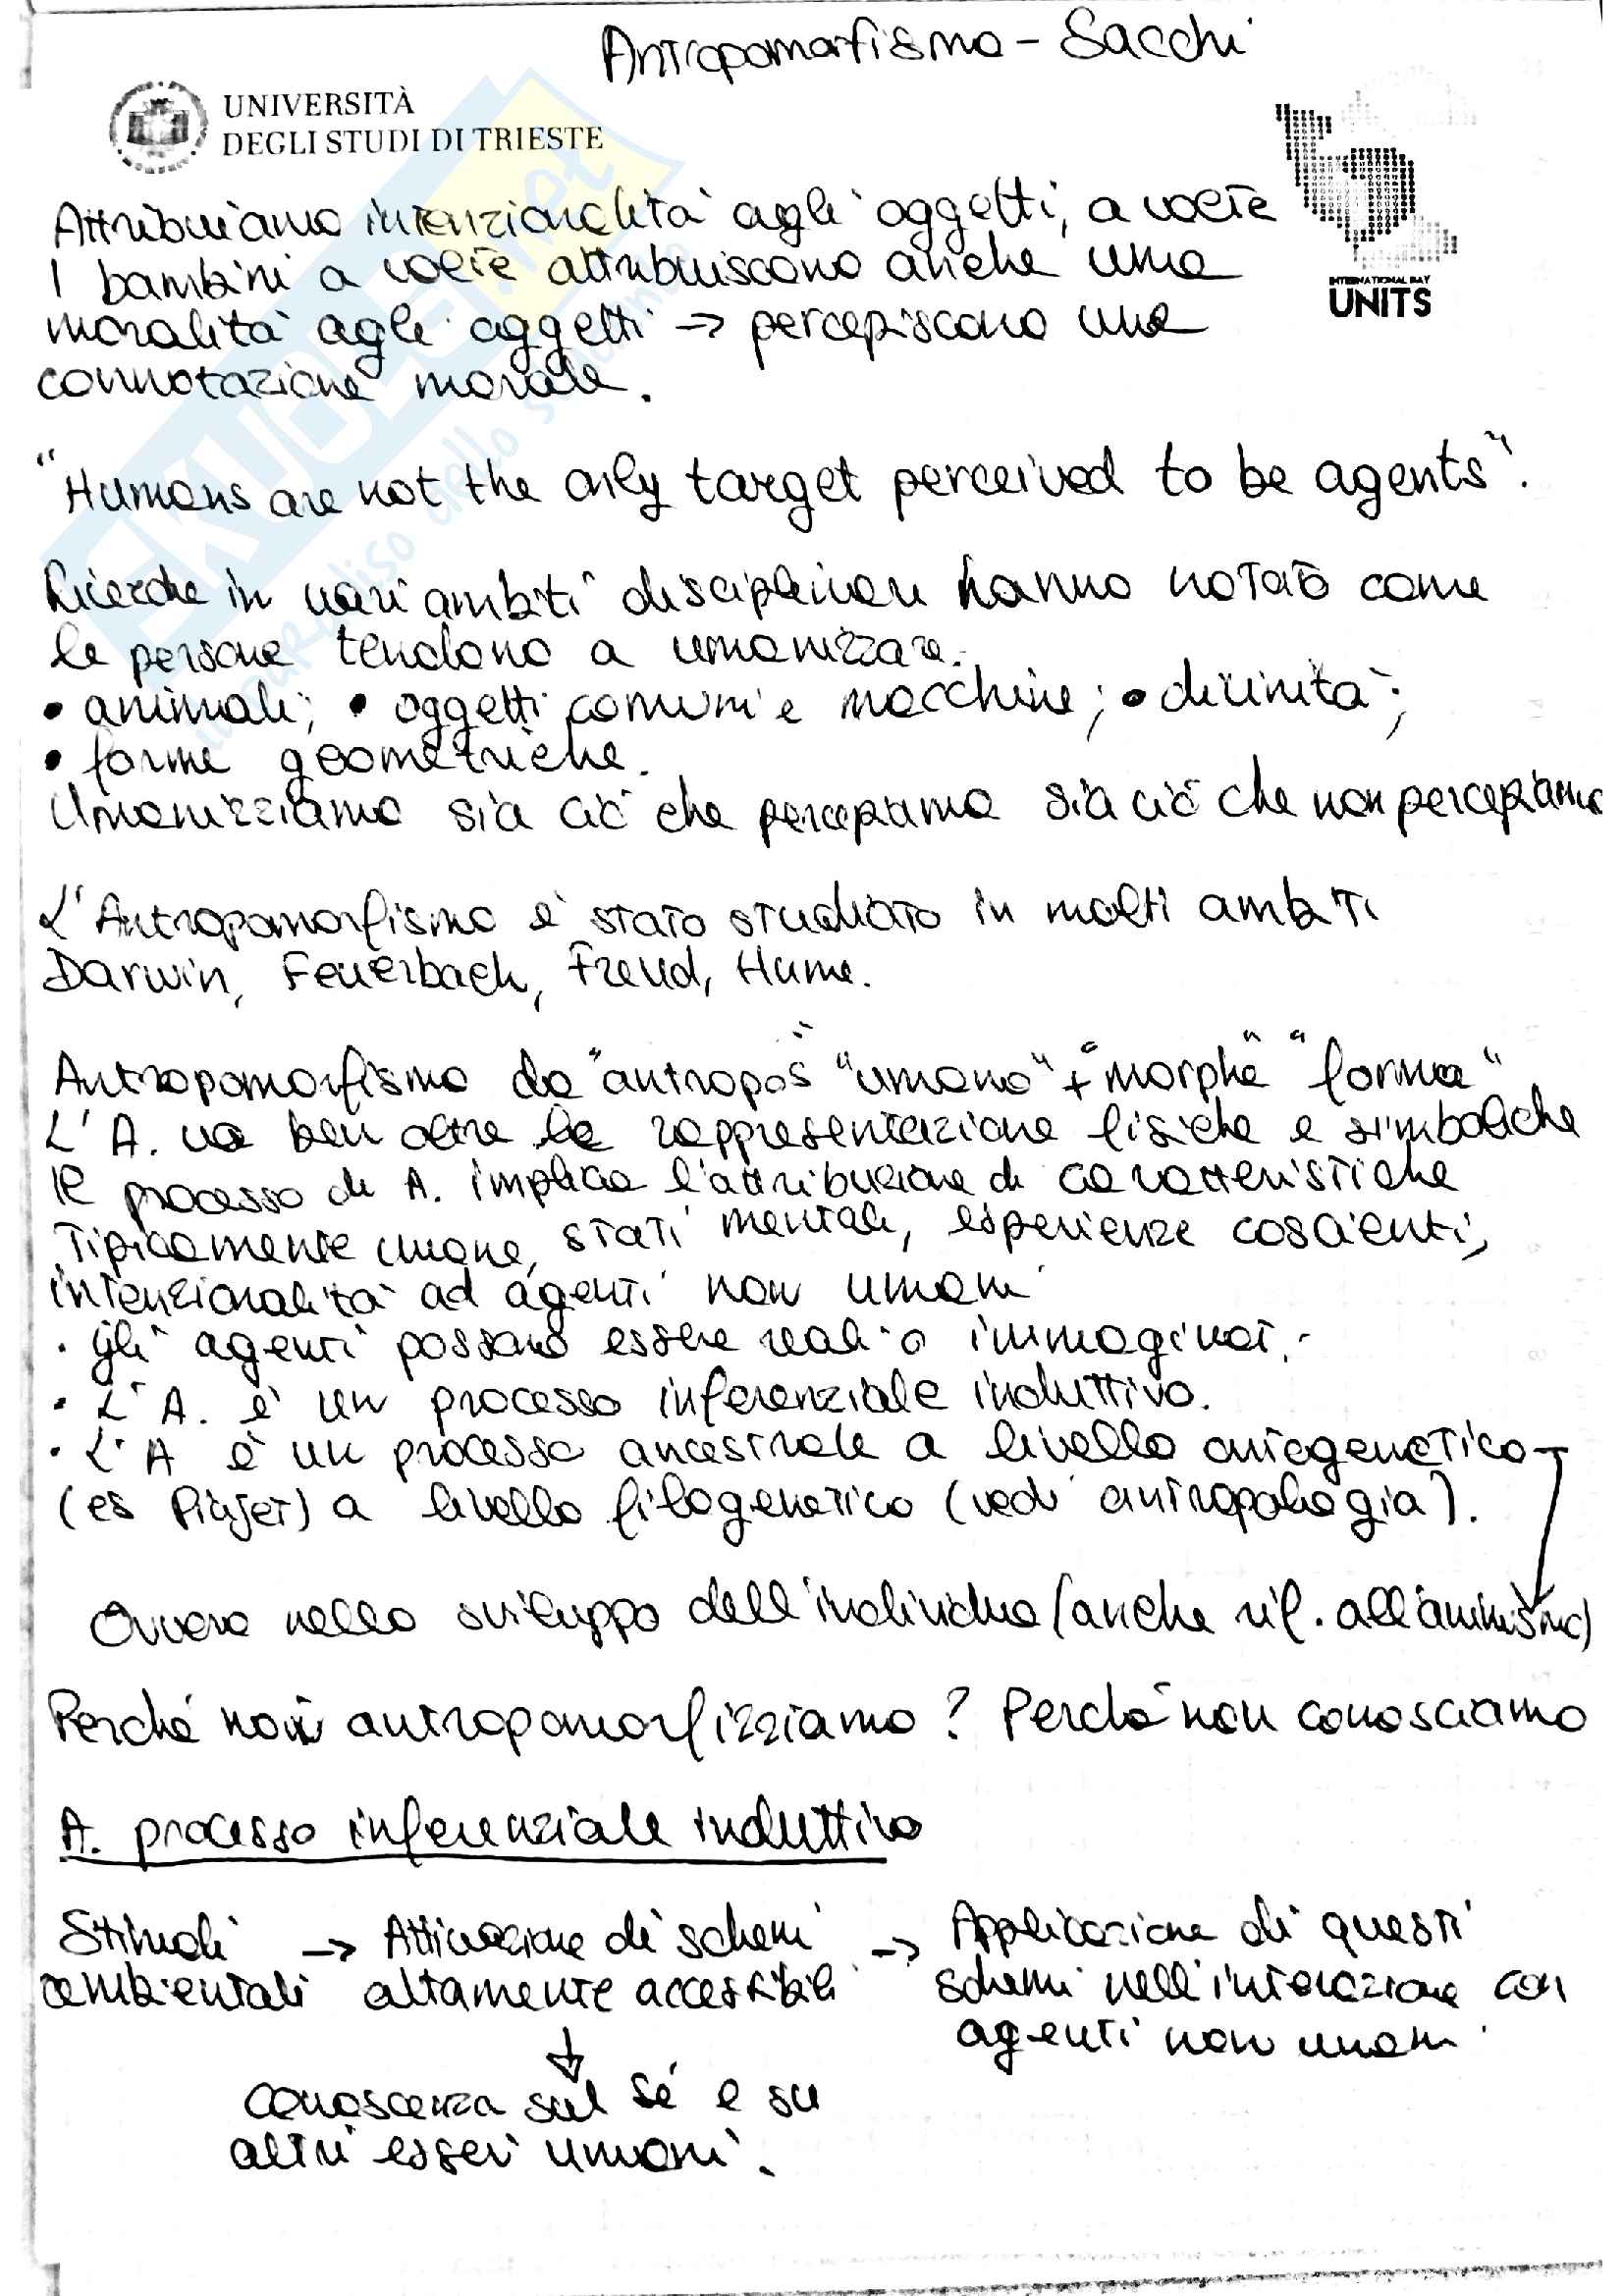 Antropomorfismo - Sacchi
UNIVERSITÀ
DEGLI STUDI DI TRIESTE
INTERNATIONAL DAY
UNITS
SKUOLA.net
il paradiso dello studente
Attribuiamo intenzionalità agli oggetti, a volte
I bambini a volte attribuiscono anche una
moralità agli oggetti -> percepiscono una
connotazione morale.
"Humans are not the only target perceived to be agents".
Ricerche in vari ambiti disciplinari hanno notato come
le persone tendono a umanizzare.
• animali; • oggetti comuni e macchine; • divinità;
• forme geometriche.
Umanizziamo sia ciò che percepiamo sia ciò che non percepiamo
L'Antropomorfismo è stato studiato in molti ambiti
Darwin, Feuerbach, Freud, Hume.
Antropomorfismo da "antropos" "umano" + "morphe" "forma"
L'A. va ben oltre le rappresentazione fisiche e simboliche
Il processo di A. implica l'attribuzione di caratteristiche
tipicamente umane, stati mentali, esperienze coscienti,
intenzionalità ad agenti non umani
• gli agenti possono essere reali o immaginari.
• L'A. è un processo inferenziale induttivo.
• L'A è un processo ancestrale a livello ontogenetico
(es Piajet) a livello filogenetico (vedi antropologia).
Ovvero nello sviluppo dell'individuo (anche rif. all'animismo)
Perché noi antropomorfizziamo? Perché non conosciamo
A. processo inferenziale induttivo
Stimoli -> Attivazione di schemi -> Applicazione di questi
ambientali altamente accessibili schemi nell'interazione con
agenti non umani
↓
conoscenza sul sé e su
altri esseri umani.